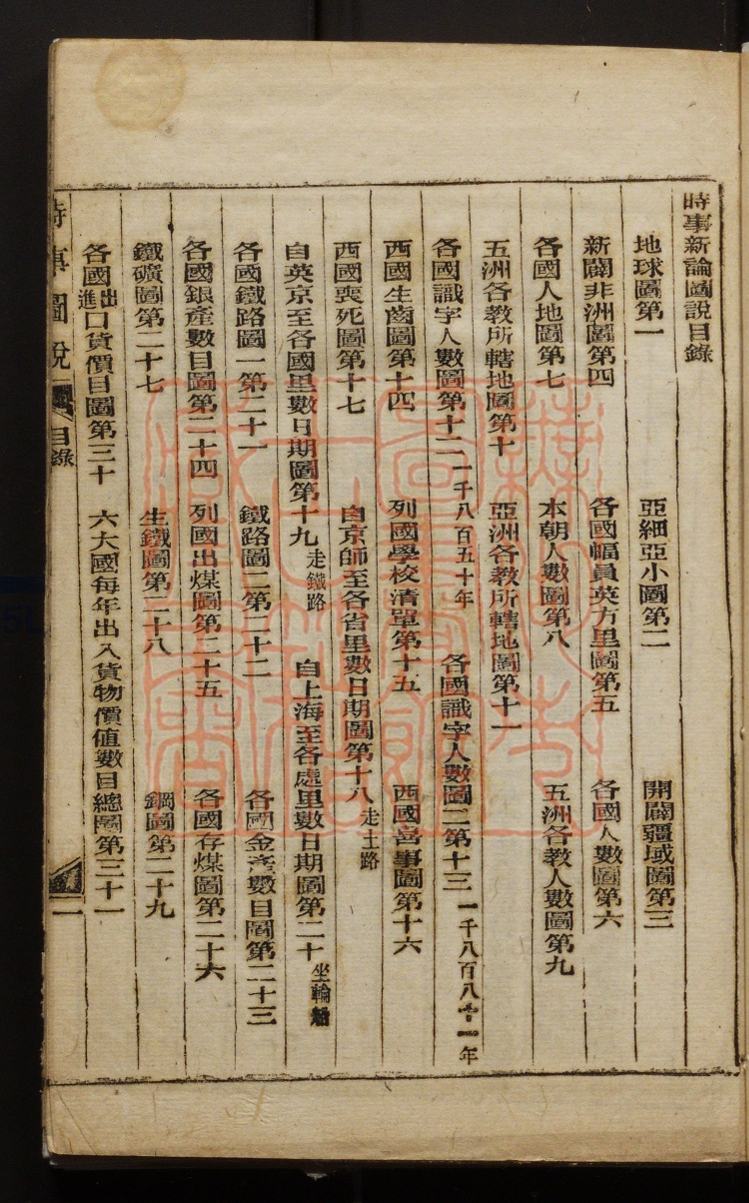 時事新論圖說目錄
地球圖第一　亞細亞小圖第二　開闢疆域圖第三
新闢非洲圖第四　各國幅員英方里圖第五　各國人數圖第六
各國人地圖第七　本朝人數圖第八　五洲各教人數圖第九
五洲各教所轄地圖第十　亞洲各教所轄地圖第十一
各國識字人數圖第十二 一千八百五十年　各國識字人數圖二第十三 一千八百八十一年
西國生齒圖第十四　列國學校清單第十五　西國善事圖第十六
西國喪死圖第十七　自京師至各省里數日期圖第十八 走土路
自英京至各國里數日期圖第十九 走鐵路　自上海至各處里數日期圖第二十 坐輪船
各國鐵路圖一第二十一　鐵路圖二第二十二　各國金產數目圖第二十三
各國銀產數目圖第二十四　列國出煤圖第二十五　各國存煤圖第二十六
鐵礦圖第二十七　生鐵圖第二十八　鋼圖第二十九
各國出進口貨價目圖第三十　六大國每年出入貨物價值數目總圖第三十一
時事圖說　目錄　一